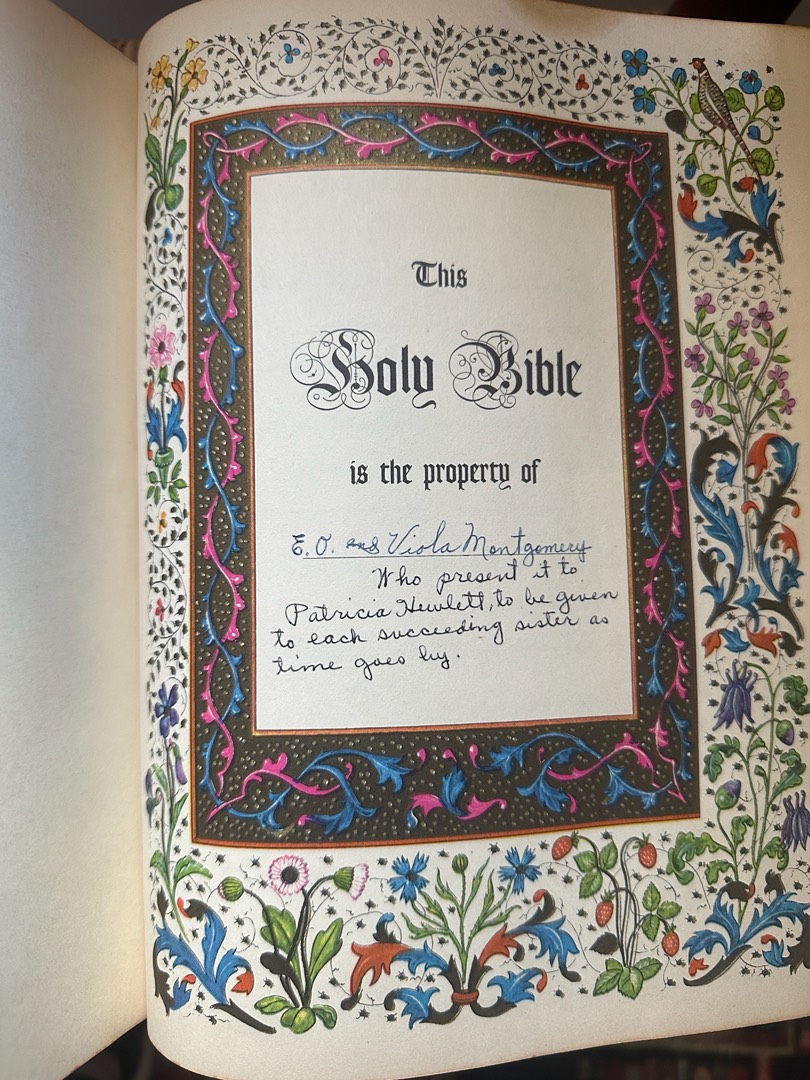 This
Holy Bible
is the property of
E. O. and Viola Montgomery
Who present it to
Patricia Hewlett, to be given
to each succeeding sister as
time goes by.